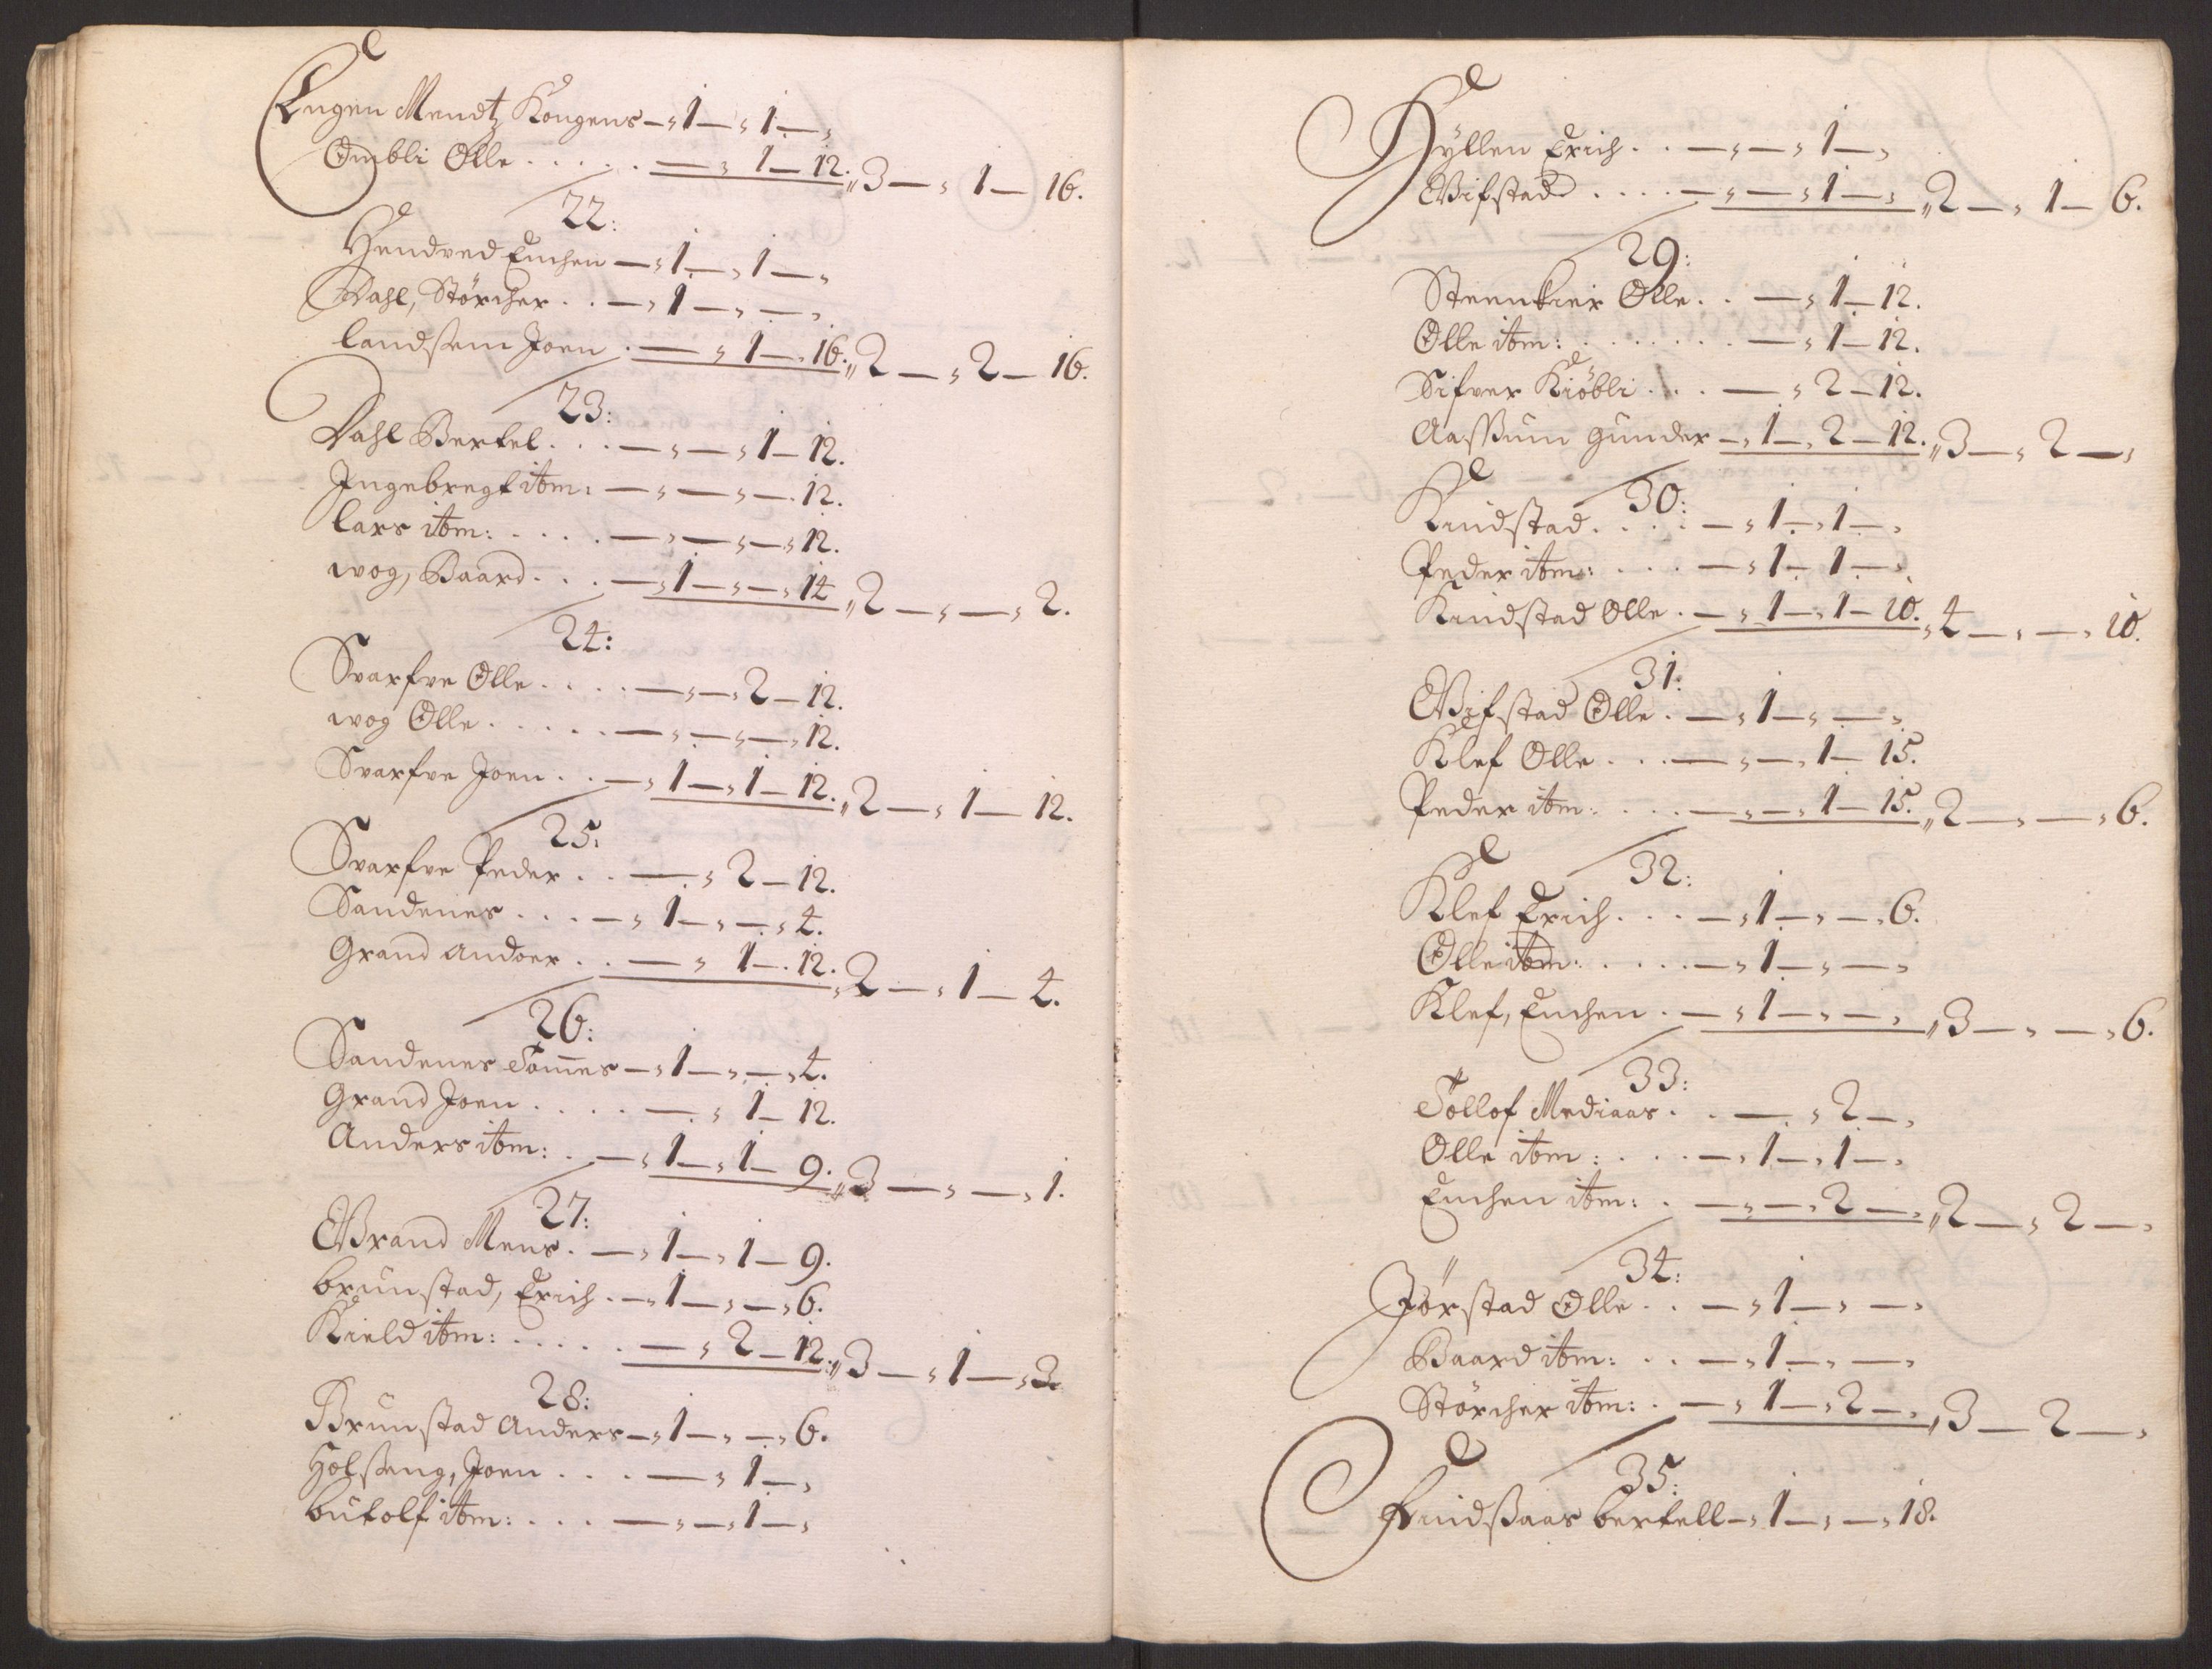 Eugen Mendtz Kongens — " 1 — " 1 — "
Ombli Olle . . . . . — " 1 — 12. " 3 — " 1 — 16.
22:
Hendved Enchen — " 1 — " 1 — "
Dahl, Störcher . . — " 1 — " — "
Landsem Joen . — " 1 — 16. " 2 — " 2 — 16.
23:
Dahl Bertel . . . — " — " 1 — 12.
Ingebregt itm: — " — " — 12.
Lars itm: . . . . . — " — " — " 12.
wog, Baard . . . — " 1 — " — " 14 " 2 — " — " 2.
24:
Svarfve Olle . . . . — " — " 2 — 12.
wog Olle . . . . . — " — " — " 12.
Svarfve Joen . . — " 1 — " 1 — 12. " 2 — " 1 — 12.
25:
Svarfve Peder . . — " 2 — 12.
Sandenes . . . . — " 1 — " — " 4.
Grand andoer . . — " 1 — 12. " 2 — " 1 — 4.
26:
Sandenes Tom̅es — " 1 — " — " 4.
Grand Joen . . . . . — " 1 — 12.
Anders itm: . — " 1 — " 1 — 9. " 3 — " — " 1.
27:
Grand Mens . — " 1 — " 1 — 9.
brunstad, Erich . — " 1 — " — " 6.
Kield itm: . . . . . — " 2 — 12. " 3 — " 1 — " 3
28:
Brunstad Anders — " 1 — " — " 6.
Holseng, Joen . . . — " 1 — "
butolf itm: . . . — " — " 1 — "
Hÿllen Erich . . — " — " 1 — "
Vifstad . . . . — " — " 1 — " " 2 — " 1 — 6.
29:
Steenkier Olle . . — " 1 — 12.
Olle itm: . . . . . . . — " 1 — 12.
Sifver Kiöbli . . . — " 2 — 12.
Aassum gunder — " 1 — " 2 — 12. " 3 — " 2 — "
30:
Kindstad . . . . — " 1 — " 1 — "
Peder itm: . . . . — " 1 — 1 — "
Kindstad Olle . — " 1 — " 1 — 10. " 4 — " — " 10.
31:
Vifstad Olle . — " 1 — " — "
Klef Olle . . . — " — " 1 — 15.
Peder itm: . . . — " — " 1 — 15. " 2 — " — " 6.
32:
Klef Erich . . . — " 1 — " — " 6.
Olle itm: . . . . . — " 1 — " — "
Klef, Enchen . — " 1 — " — " " 3 — " — " 6.
33:
Töllof Mediaas . . — " 2 — "
Olle itm: . . . — " 1 — " 1 — "
Enchen itm: . — " — " 2 — " " 2 — " 2 — "
34:
Jörstad Olle . . — " 1 — " — "
Baard itm: . . — " 1 — " — "
Störcher itm: . — " 1 — " 2 — " " 3 — 2 — "
35:
Findsaas bertell — " 1 — " — " 18.